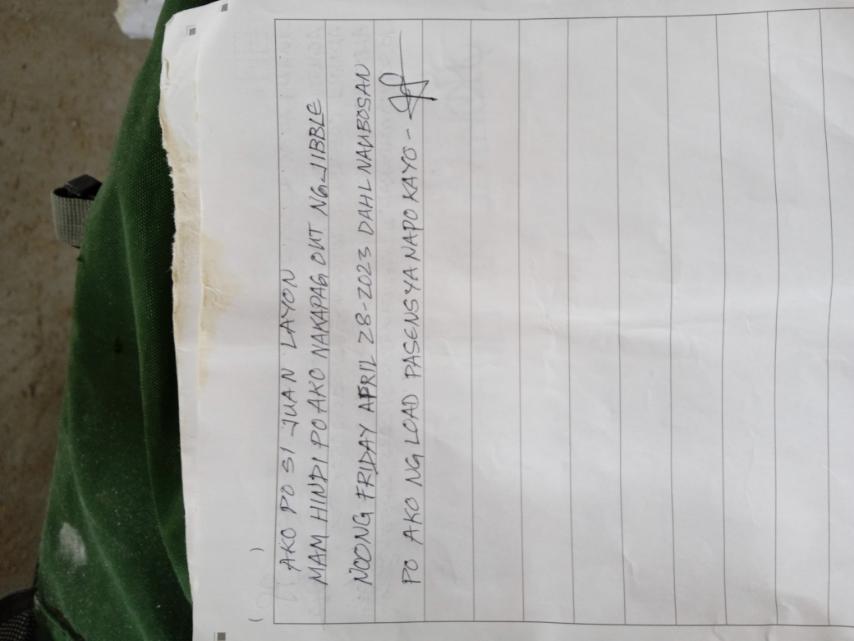 AKO PO SI JUAN LAYON
MAM HINDI PO AKO NAKAPAG OUT NG JIBBLE
NOONG FRIDAY APRIL 28-2023 DAHL NAUBOSAN
PO AKO NG LOAD PASENSYA NA PO KAYO -